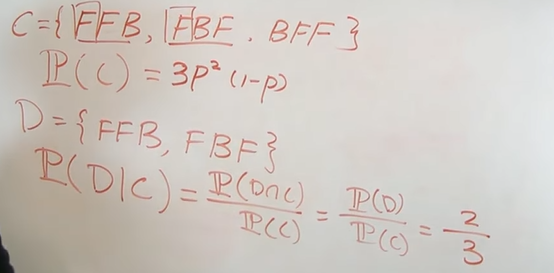 C={FFB, FBF. BFF}
ℙ(C) = 3p²(1-p)
D={FFB, FBF}
ℙ(D|C) = ℙ(D∩C)/ℙ(C) = ℙ(D)/ℙ(C) = 2/3